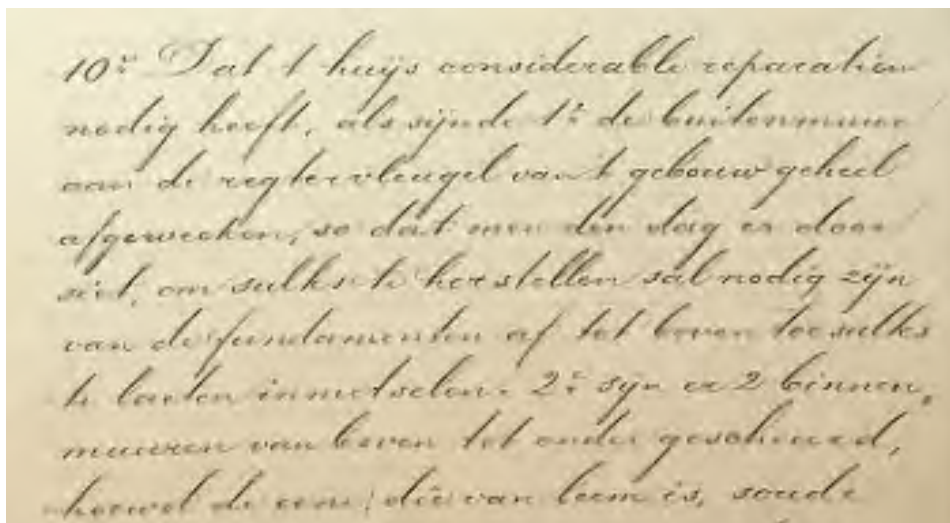 10º Dat t huijs considerable reparatien
nodig heeft, als sijnde 1º de buitenmuur
aan de regtervleugel van t gebouw geheel
afgeweeken, so dat men den dag er door
siet, om sulks te herstellen sal nodig zijn
van de fundamenten af tot boven toe sulks
te laeten inmetselen. 2º sijn er 2 binnen„
muuren van boven tot onder gescheurd,
hoewel de eene, die van leem is, soude